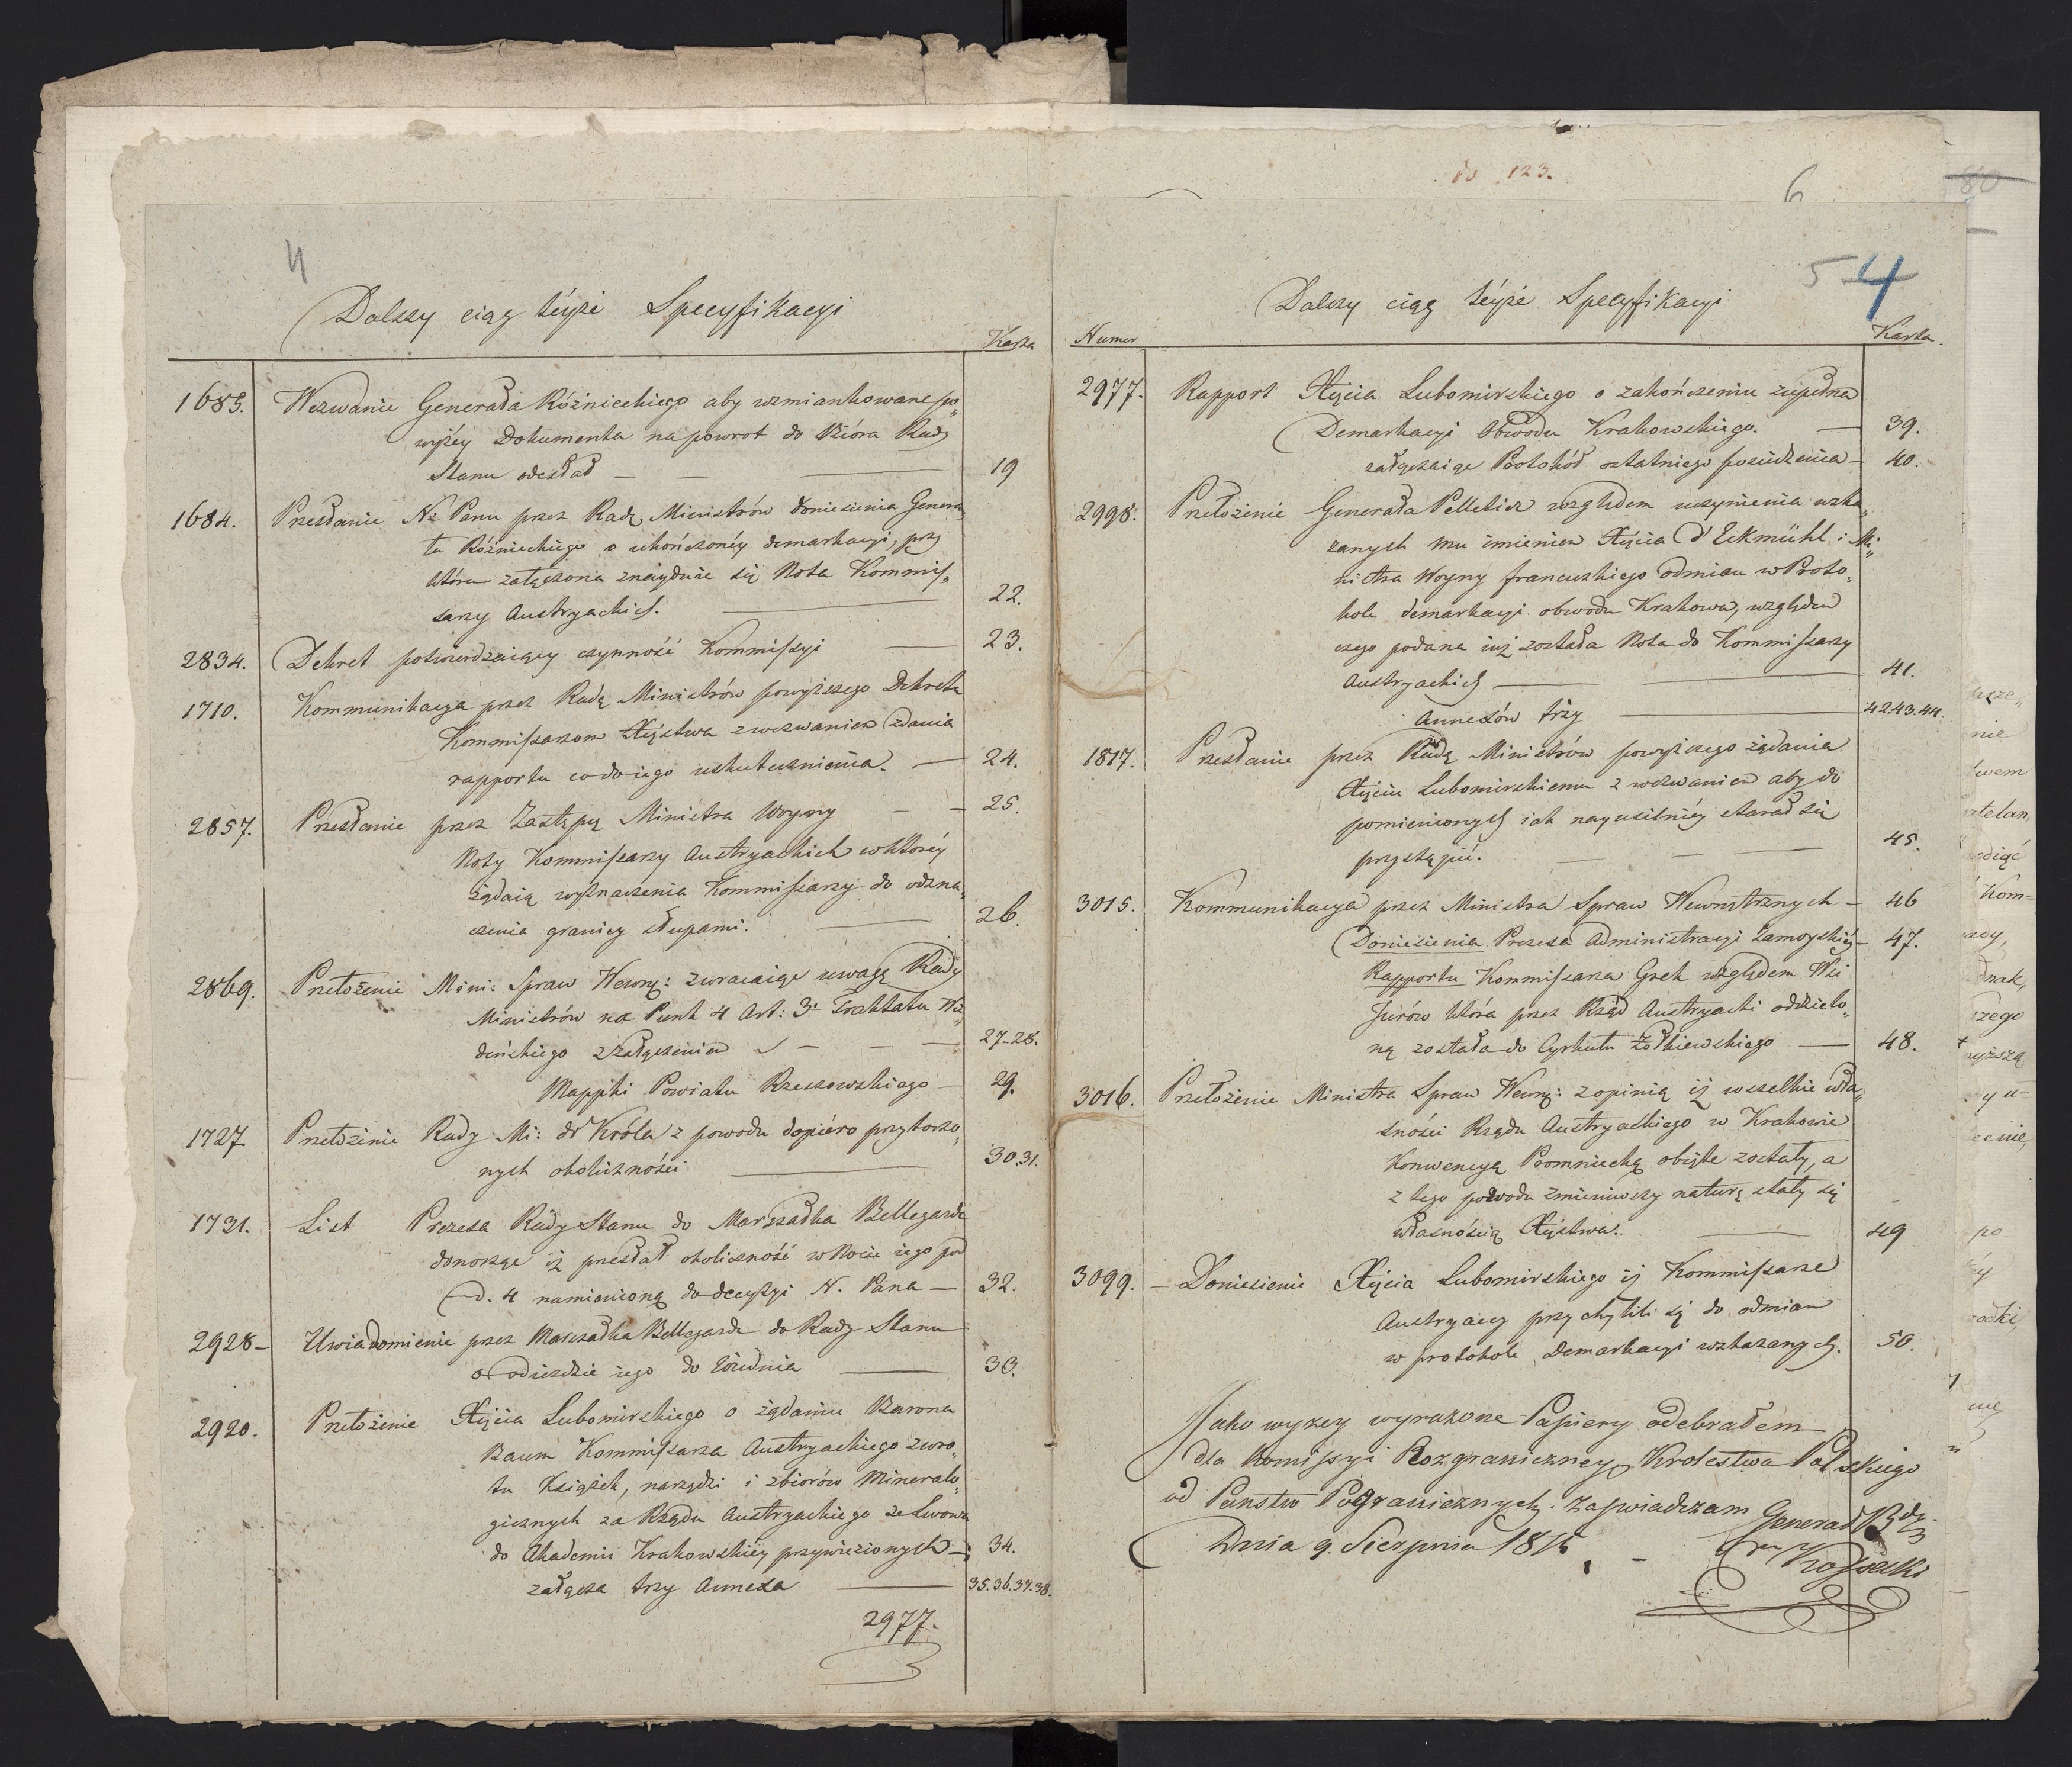 4
Dalszy ciąg téyże Specyfikacyi
Karta
1683. Wezwanie Generała Różnieckiego aby wzmiankowane po„
wyżéy Dokumenta na powrot do Bióra Rady
Stanu odesłał — — — 19
1684. Przesłanie N: Panu przez Radę Ministrów doniesienia Genera„
ła Różnieckiego o ukończonéy demarkacyi, przy
którem załączona znayduie się Nota Kommis„
sarzy Austryackich. — 22.
2834. Dekret potwierdzaiący czynność Kommissyi — 23.
1710. Kommunikacya przez Radę Ministrów powyższego Dekretu
Kommissarzom Xięstwa z wezwaniem zdania
rapportu co do iego uskutecznienia. — 24.
2857. Przesłanie przez Zastępcę Ministra Woyny — — 25.
Noty Kommissarzy Austryackich w któréy
żądaią wyznaczenia Kommissarzy do ozna„
czenia granicy słupami. — 26.
2869. Przełożenie Mini: Spraw Wewnę: zwracaiące uwagę Rady
Ministrów na Punkt 4 Art: 3: Traktatu Wie„
deńskiego z załączeniem — — — 27–28.
Mappki Powiatu Rzeszowskiego — 29.
1727 Przełożenie Rady Mi: do Króla z powodu dopiéro przytoczo„
nych okoliczności — 30.31.
1731. List Prezesa Rady Stanu do Marszałka Bellegarde
donosząc iż przesłał okoliczność w Nocie iego pod
d. 4 namienioną do decyzyi N. Pana — 32.
2928 — Uwiadomienie przez Marszałka Bellegarde do Rady Stanu
o odieździe iego do Wiednia — 33.
2920. Przełożenie Xięcia Lubomirskiego o żądaniu Barona
Baum Kommissarza Austryackiego zwro„
tu Książek, narzędzi i zbiorów Mineralo„
gicznych za Rządu Austryackiego ze Lwowa
do Akademii Krakowskiéy przywiezionych — 34.
załącza trzy Annexa — 35.36.37.38.
2977.
do 123.
6
80
5 4
Dalszy ciąg téyże Specyfikacyi
Numer Karta.
2977. Rapport Xięcia Lubomirskiego o zakończeniu zupełném
Demarkacyi Obwodu Krakowskiego. — 39.
załączaiąc Protokół ostatniego posiedzenia — 40.
2998. Przełożenie Generała Pelletier względem uczynienia wska„
zanych mu imieniem Xięcia d'Eckmühl i Mi„
nistra Woyny francuzkiego odmian w Proto„
kole demarkacyi obwodu Krakowa, względem
czego podana iuż została Nota do Kommissarzy
Austryackich — 41.
Annexów trzy — 42.43.44.
1817. Przesłanie przez Radę Ministrów powyższego żądania
Xięciu Lubomirskiemu z wezwaniem aby do
pomienionych iak nayusilniéy starał się
przystąpić. — — — 45.
3015. Kommunikacya przez Ministra Spraw Wewnętrznych — 46
Doniesienia Prezesa Administracyi Zamoyskiéy — 47.
Rapportu Kommissarza Grek względem Wsi
Jurów która przez Rząd Austryacki oddzielo„
ną została do Cyrkułu Żółkiewskiego — 48.
3016. Przełożenie Ministra Spraw Wewnę: z opinią iż wszelkie wła„
sności Rządu Austryackiego w Krakowie
Konwencyą Promnicką obięte zostały, a
z tego powodu zmieniwszy naturę stały się
własnością Xięstwa. — 49
3099. — Doniesienie Xięcia Lubomirskiego iż Kommissarze
Austryaccy przychylili się do odmian
w protokole Demarkacyi wskazanych. 50.
Jako wyzey wyrażone Papiery odebrałem
dla Komissyi Rozgraniczney Krolestwa Polskiego
od Panstw Pogranicznych. Zaswiadczam
Dnia 9. Sierpnia 1815. — Generał Bdy
Kossecki